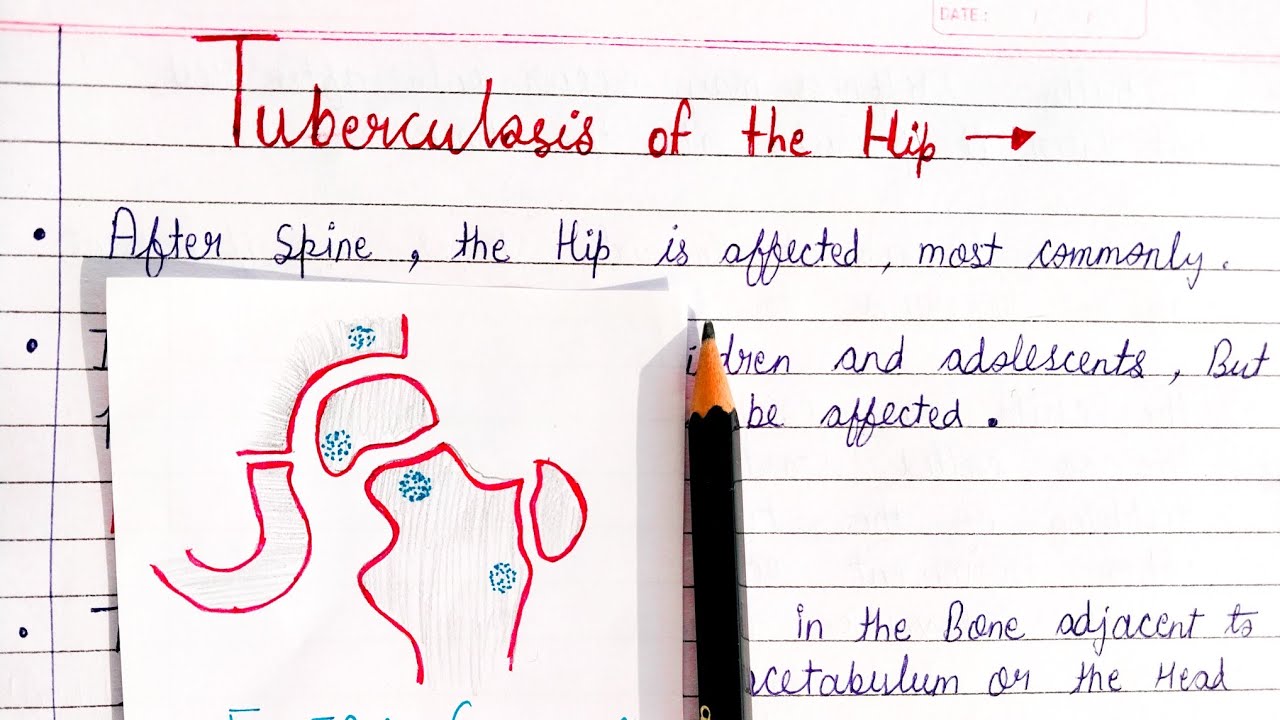 DATE:
Tuberculosis of the Hip →
• After Spine, the Hip is affected, most commonly.
• and adolescents, But
be affected.
• in the Bone adjacent to
or the Head